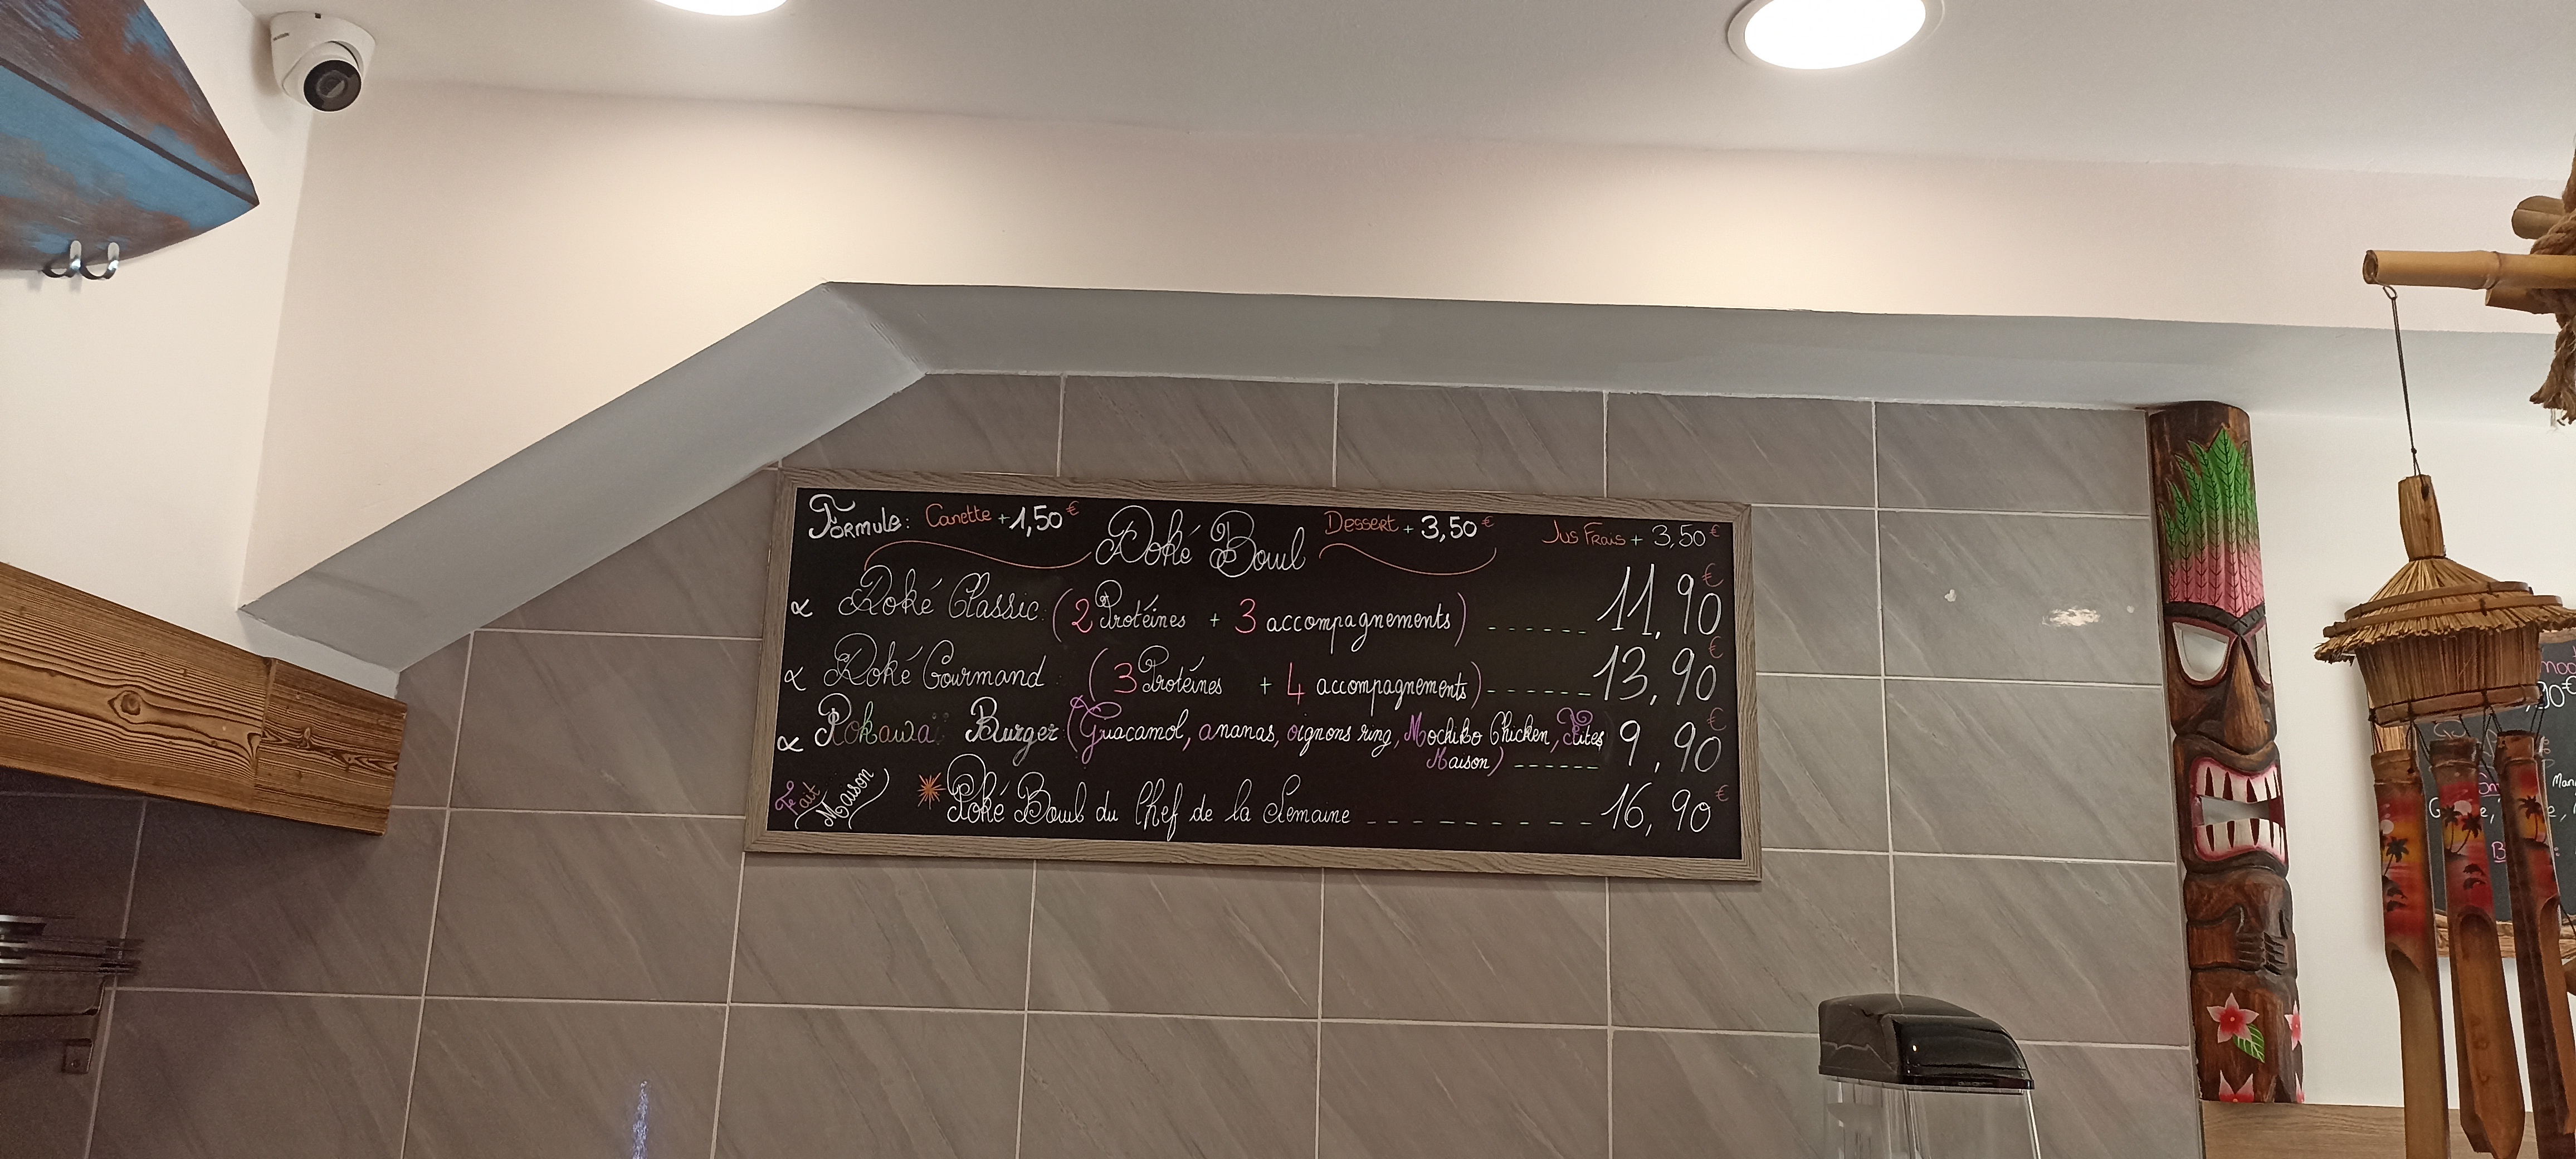 Formule: Canette +1,50€ Dessert + 3,50€ Jus Frais + 3,50€
Poké Bowl
Poké Classic: (2 Protéines + 3 accompagnements) ------ 11,90€
Poké Gourmand: (3 Protéines + 4 accompagnements) ------ 13,90€
Pokawaï Burger (Guacamol, ananas, oignons ring, Mochiko Chicken, Frites 9,90€
Maison) ------
Fait Maison
Poké Bowl du Chef de la Semaine ---------- 16,90€